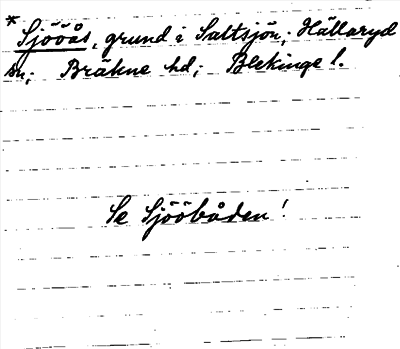 * Sjööås, grund i Saltsjön; Hällaryd
sn; Bräkne hd; Blekinge l.
Se Sjööbåden!